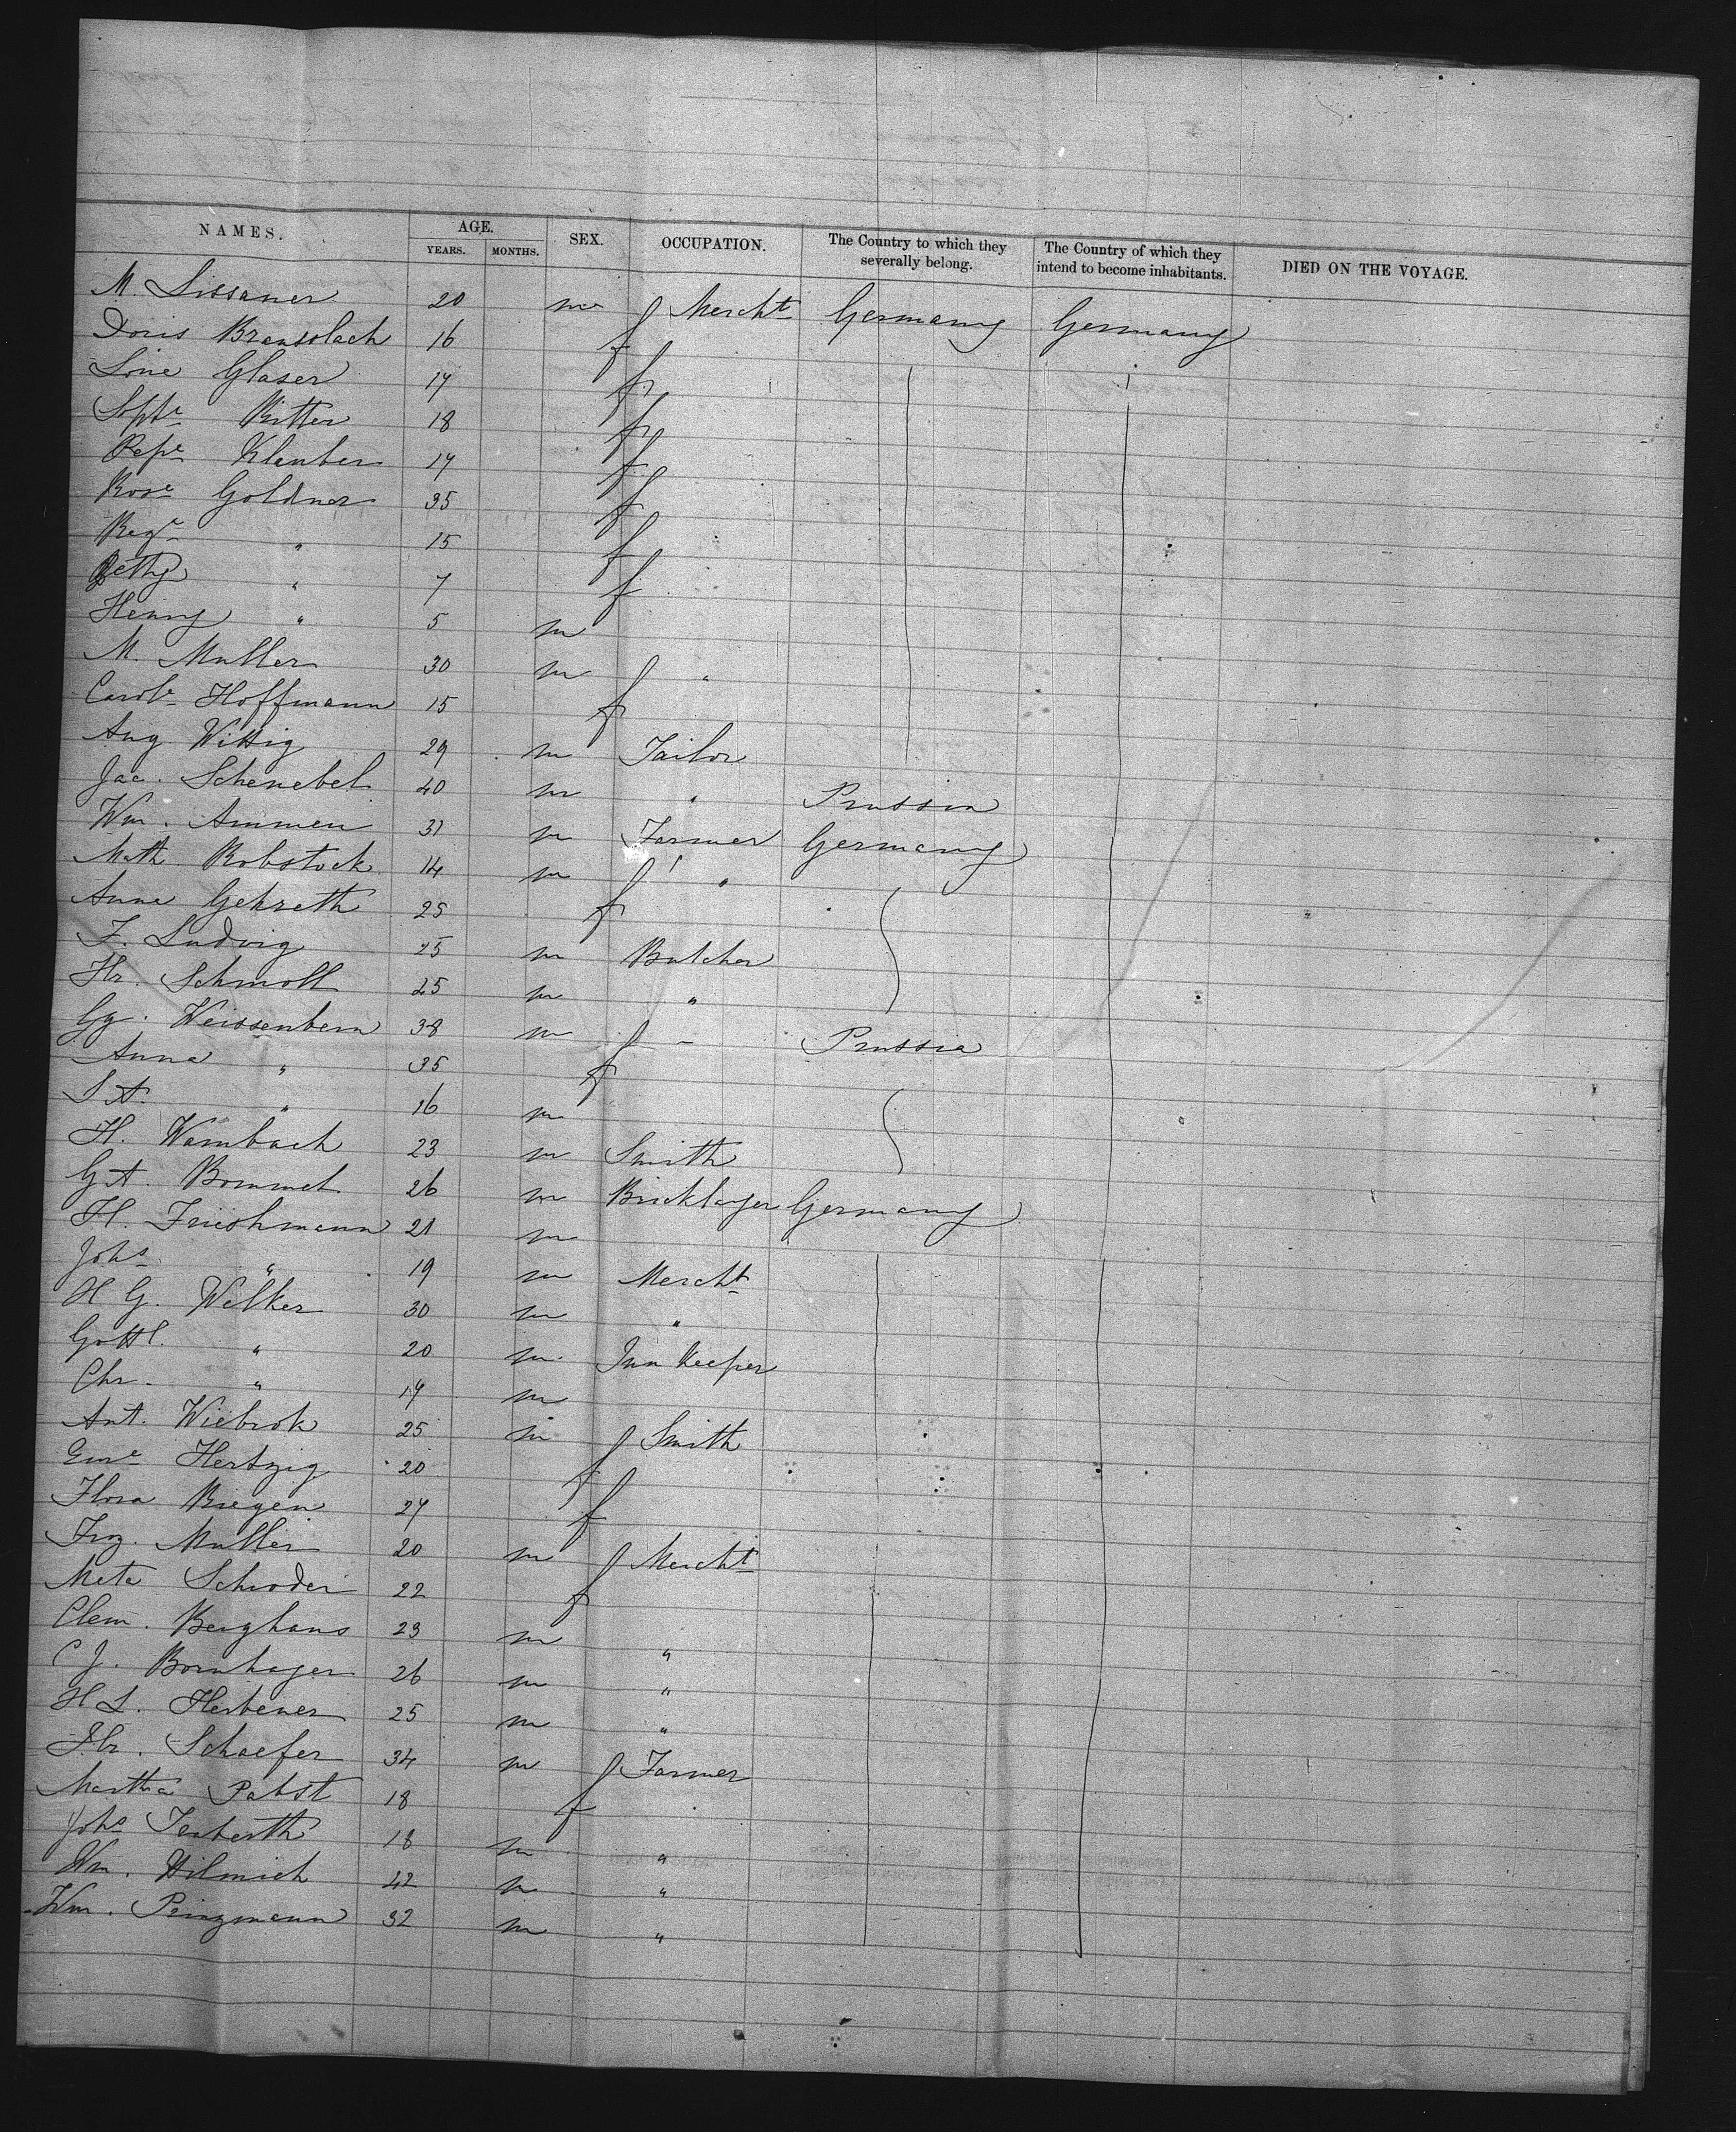 NAMES. AGE. SEX. OCCUPATION. The Country to which they severally belong. The Country of which they intend to become inhabitants. DIED ON THE VOYAGE.
YEARS. MONTHS.
M. Lissauer 20 m Mercht Germany Germany
Doris 16 f
Line Glaser 17 f
Sophe Ritter 18 f
Pepe Klauber 17 f
Rose Goldner 35 f
Rege " 15 f
Betty " 7 f
Henry " 5 m
M. Muller 30 m "
Carole Hoffmann 15 f
Aug. Wittig 29 m Tailor
Jac. Schenebel 40 m " Prussia
Wm. Ammen 31 m Farmer Germany
Math. Robstock 14 m "
Anna Gekreth 25 f
F. Ludvig 25 m Butcher
Hr. Schmoll 25 m "
Gg. Weissenborn 38 m " Prussia
Anna " 35 f
S A. " 16 m
H. Wambach 23 m Smith
G A. Bommet 26 m Bricklayer Germany
H. Frieshmann 21 m
Johs " 19 m Mercht
H G. Welker 30 m "
Gottl. " 20 m Inn Keeper
Chr. " 17 m
Ant. Wiebrok 25 m Smith
Eme Hertzig 20 f
Flora Biegen 27 f
Frz. Muller 20 m Mercht
Meta Schroder 22 f
Clem. Berghaus 23 m "
C J. Bornhagen 26 m "
H L. Herbener 25 m "
Hr. Schaefer 34 m Farmer
Martha Pabst 18 f
Johs 18 m "
Wm. Hilmich 42 m "
Wm. Pinzmann 32 m "